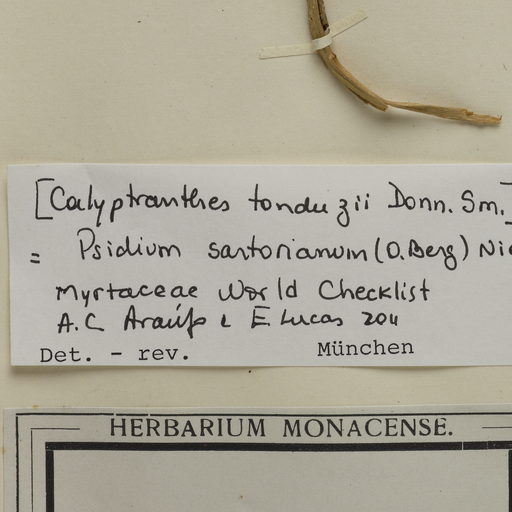 [Calyptranthes tonduzii Donn. Sm.]
= Psidium sartorianum (O. Berg) Nie
Myrtaceae World Checklist
A.C Araújo & E Lucas 2011
Det. - rev. München
HERBARIUM MONACENSE.